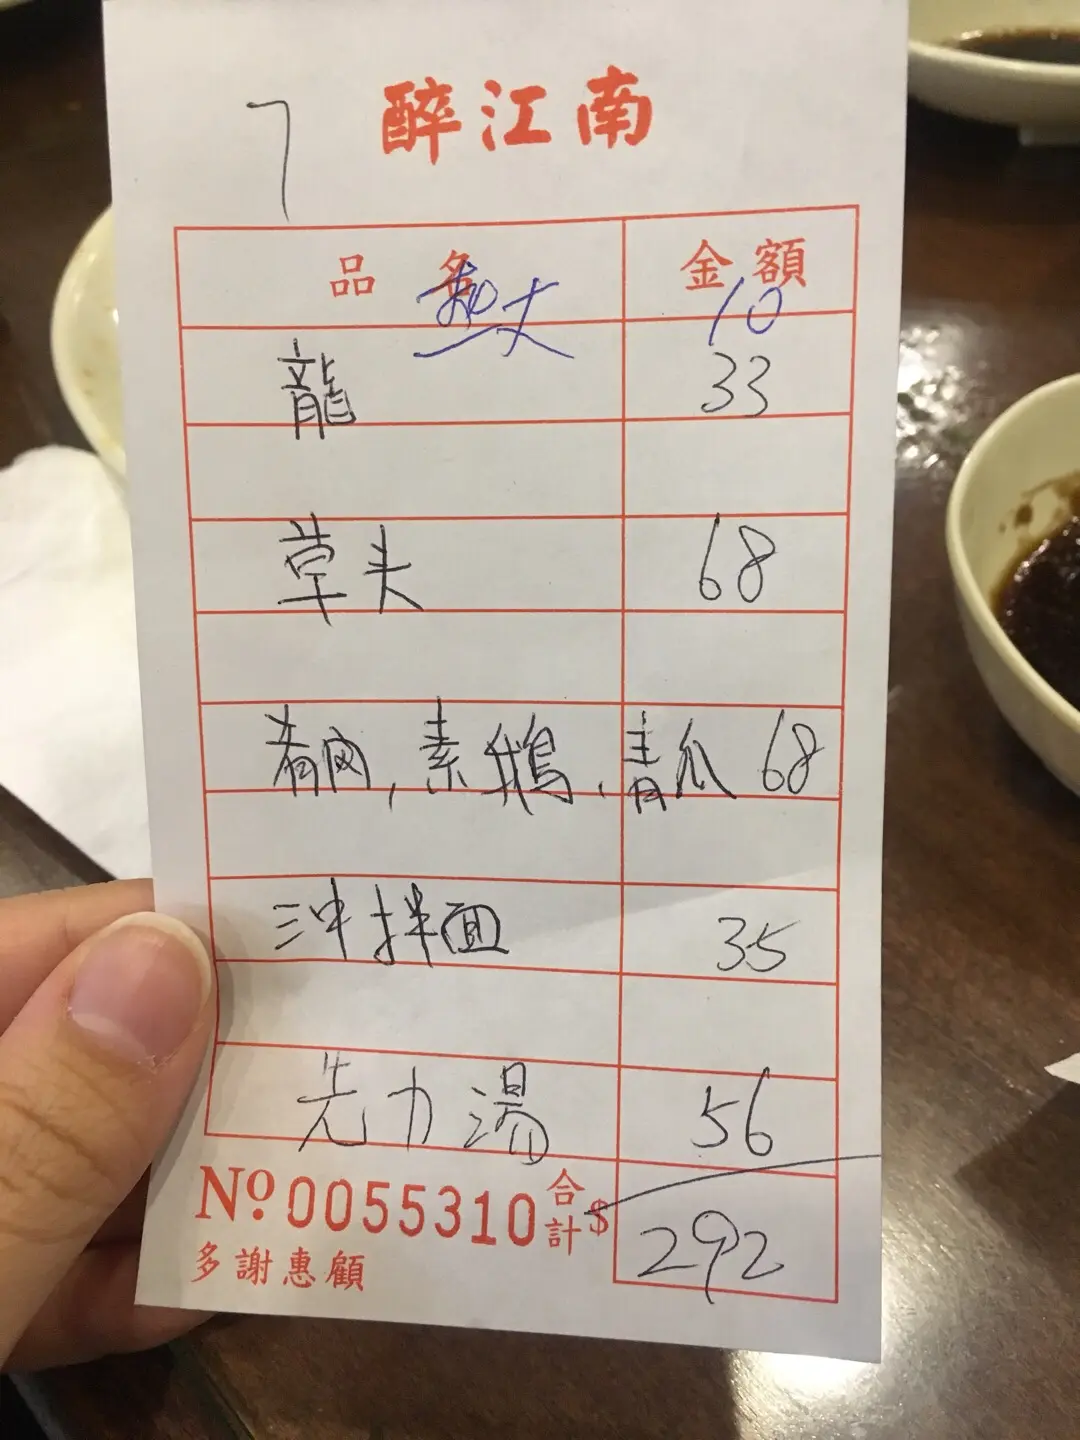 7
醉江南
品名 金額
10
龍 33
草头 68
肴肉，素鵝，青瓜 68
拌面 35
先力湯 56
No 0055310 合計 $ 292
多謝惠顧